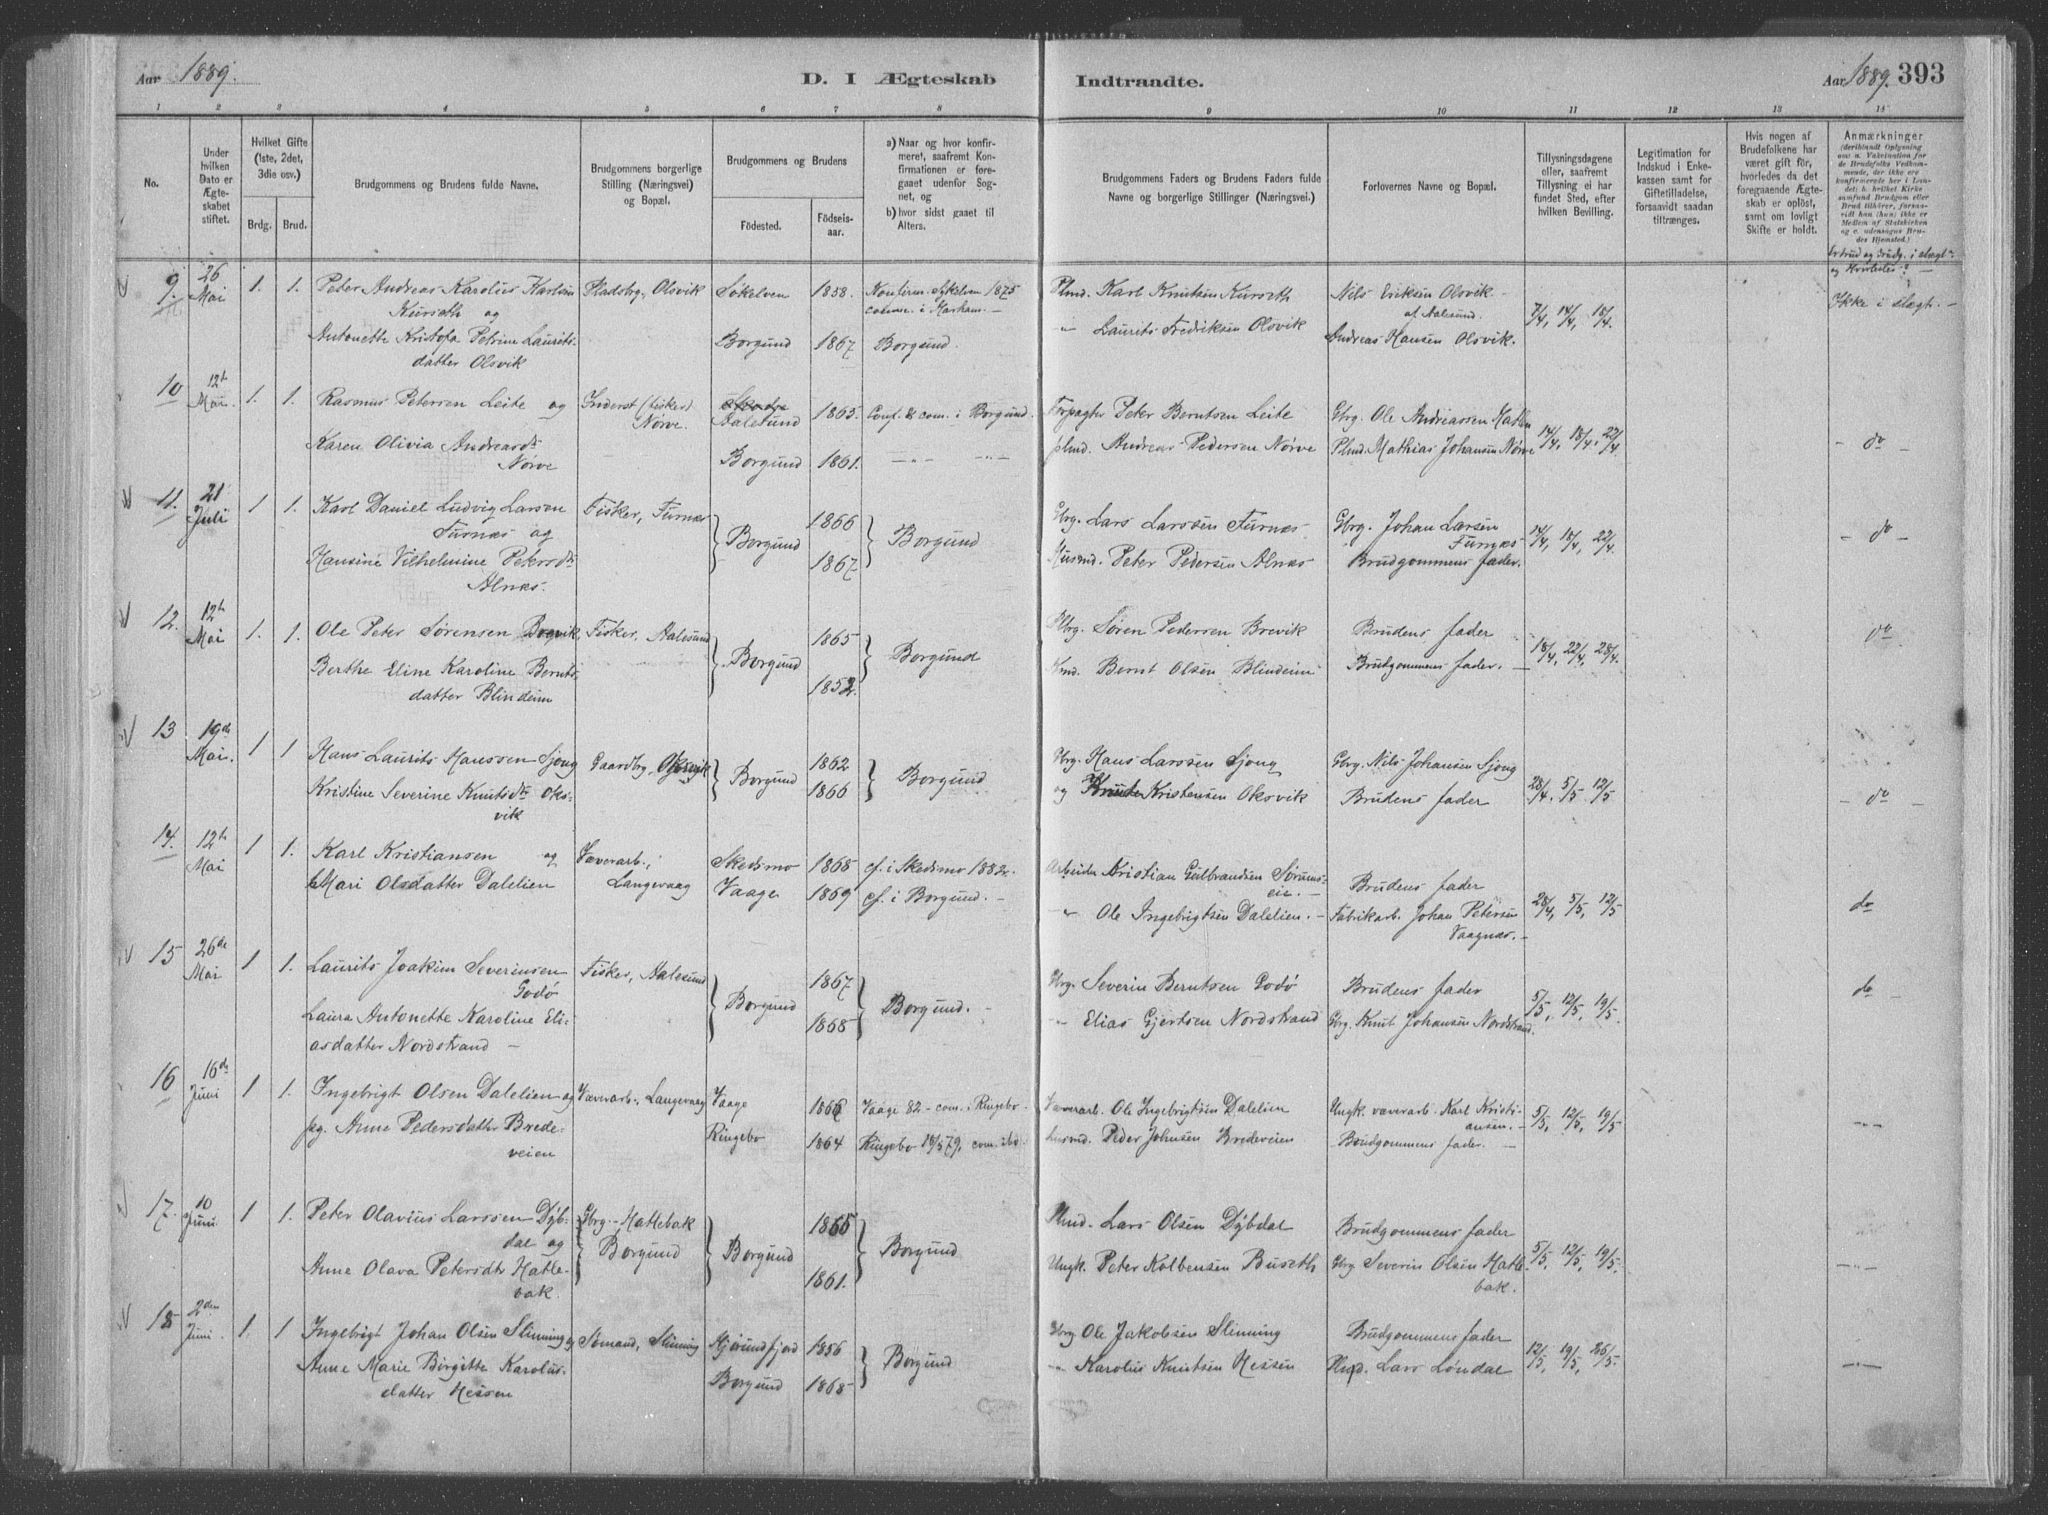 Aar 1889.
D. I Ægteskab
Indtraadte.
Aar 1889. 393
1 2 3 4 5 6 7 8 9 10 11 12 13 14
No.
Under hvilken Dato er Ægteskabet stiftet.
Hvilket Gifte (1ste, 2det, 3die osv.)
Brdg. Brud.
Brudgommens og Brudens fulde Navne.
Brudgommens borgerlige Stilling (Næringsvei) og Bopæl.
Brudgommens og Brudens
Födested. Födselsaar.
a) Naar og hvor konfirmeret, saafremt Konfirmationen er foregaaet udenfor Sognet, og
b) hvor sidst gaaet til Alters.
Brudgommens Faders og Brudens Faders fulde Navne og borgerlige Stillinger (Næringsvei.)
Forlovernes Navne og Bopæl.
Tillysningsdagene eller, saafremt Tillysning ei har fundet Sted, efter hvilken Bevilling.
Legitimation for Indskud i Enkekassen samt for Giftetilladelse, forsaavidt saadan tiltrænges.
Hvis nogen af Brudefolkene har været gift før, hvorledes da det foregaaende Ægteskab er opløst, samt om lovligt Skifte er holdt.
Anmærkninger
(deriblandt Oplysning om a. Vakcination for de Brudefolks Vedkommende, der ikke ere konfirmerede her i Landet; b. hvilket Kirkesamfund Brudgom eller Brud tilhörer, forsaavidt han (hun) ikke er Medlem af Statskirken og c. udensogns Brudes Hjemsted.)
Er brud og brudg. i slægt og hvorledes?
9. 26 Mai 1. 1. Peter Andreas Karolus Karlsen Kurseth og Pladsbg., Olsvik Søkelven 1858. Konfirm. Sykelven 1875 comm. i Markam. Plmd. Karl Knutsen Kurseth Nils Eriksen Olsvik af Aalesund. 7/4, 14/4, 18/4. Ikke i slægt.
Antonette Kristofa Petrine Lauritsdatter Olsvik Borgund 1867 Borgund. " Laurits Fredriksen Olsvik Andreas Hansen Olsvik.
10 12te Mai. 1. 1. Rasmus Petersen Leite og Inderst (fisker) Nørve. Aalesund 1865. Conf. & com. i Borgund. Forpagter Peter Berntsen Leite Gbrg. Ole Andreassen Hatlen 14/4, 18/4, 22/4 - do -
Karen Olivia Andreasdtr Nørve Borgund 1861. —"— —"— plmd. Andreas Pedersen Nørve Plmd. Mathias Johansen Nørve
11. 21 Juli 1 1. Karl Daniel Ludvig Larsen Furnæs og Fisker, Furnæs Borgund 1866 Borgund Gbrg. Lars Larssen Furnæs Gbrg. Johan Larsen Furnæs 14/4, 18/4, 22/4. - do -
Hansine Vilhelmine Petersdtr Alnæs. 1867. Husmd. Peter Pedersen Alnæs Brudgommens fader.
12. 12te Mai 1. 1. Ole Peter Sørensen Brevik, Fisker, Aalesund Borgund 1865 Borgund Pbrg. Søren Pedersen Brevik Brudens fader 18/4, 22/4, 28/4. do
Berthe Eline Karoline Berntsdatter Blindeim 1852. Kmd. Bernt Olsen Blindeim Brudgommens fader.
13 19de Mai. 1 1 Hans Laurits Hanssen Sjong Gaardbg., Borgund 1862 Borgund. Gbrg. Hans Larssen Sjong Gbrg. Nils Johansen Sjong 28/4. 5/5. 12/5 - do -
Kristine Severine Knutsdtr Oksvik 1866 og Knut Kristensen Oksvik Brudens fader
14. 12te Mai 1 1. Karl Kristiansen og Væverarb., Langevaag Skedsmo 1868 cf. i Skedsmo 1882. Arbeider Kristian Gulbrandsen Sørumseie. Brudens fader 28/4, 5/5, 12/5 do
Mari Olsdatter Dalelien Vaage 1869 cf. i Borgund. " Ole Ingebrigtsen Dalelien. Fabrikarb. Johan Petersen Vaagnæs.
15 26de Mai 1 1. Laurits Joakim Severinsen Godø Fisker, Aalesund Borgund 1867 Borgund. Gbrg. Severin Berntsen Godø Brudens fader 5/5, 12/5, 19/5. do -
Laura Antonette Karoline Eliasdatter Nordstrand 1868 " Elias Gjertsen Nordstrand Gbrg. Knut Johansen Nordstrand.
16 16de Juni 1 1. Ingebrigt Olsen Dalelien og Væverarb., Langevaag Vaage 1866 Vaage 82 - com. i Ringebo. Væverarb. Ole Ingebrigtsen Dalelien Ungk. væverarb. Karl Kristiansen. 5/5, 12/5, 19/5. —"—
pg. Anne Pedersdatter Bredeveien Ringebo 1864 Ringebo 18/5 79, com. ibd. husmd. Peder Johnsen Bredeveien Brudgommens fader.
17. 10 Juni 1 1. Peter Olavius Larssen Dybdal og Gbrg. Hatlebak Borgund Borgund 1865 Borgund Plmd. Lars Olsen Dybdal Brudgommens fader 5/5, 12/5, 19/5. —"—
Anne Olava Petersdtr Hatlebak 1861. Ungk. Peter Kolbensen Buseth Gbrg Severin Olsen Hatlebak.
18 2den Juni. 1. 1 Ingebrigt Johan Olsen Slinning og Sømand, Slinning Hjørundfjord 1856 Borgund Gbrg Ole Jakobsen Slinning Brudgommens fader 12/5, 19/5, 26/5. —"—
Anne Marie Birgitte Karolusdatter Hessen Borgund 1868 " Karolus Knutsen Hessen Plmd. Lars Løndal